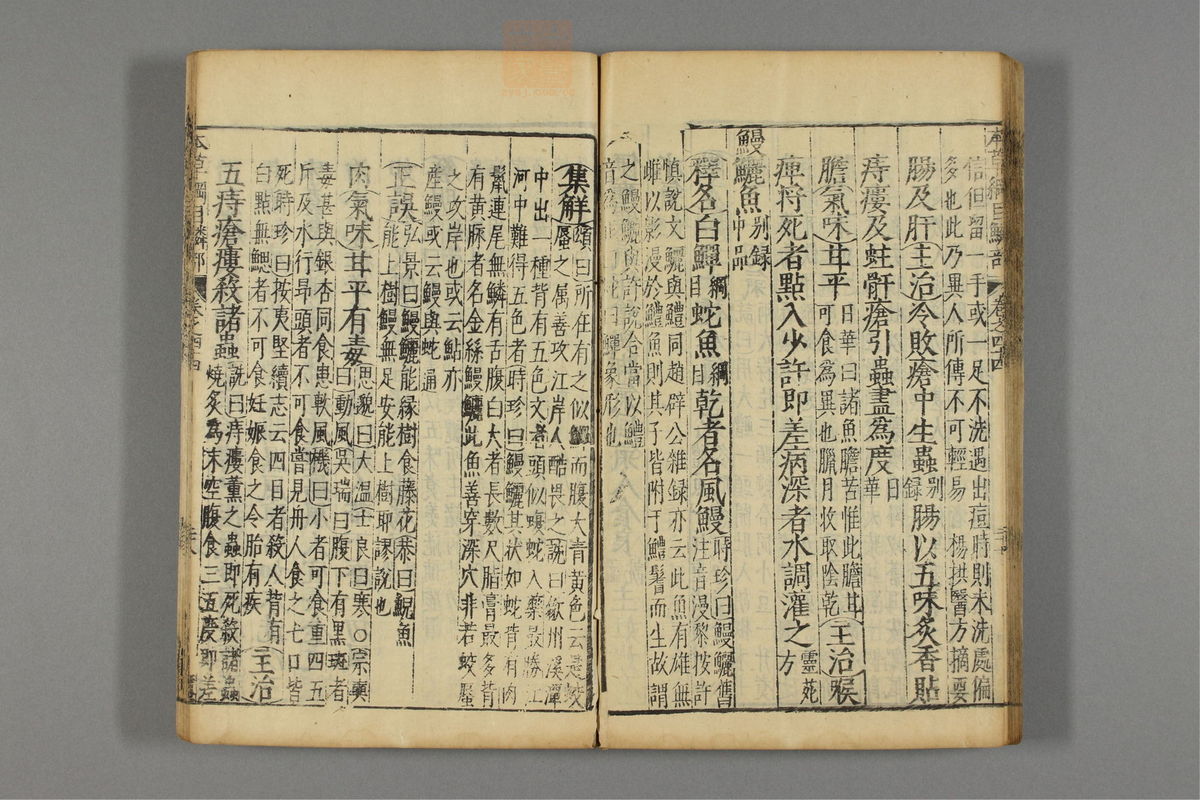 本草綱目鱗部 卷之四十四
信但留一手或一足不洗遇出痘時則未洗處偏
多也此乃異人所傳不可輕易 楊拱醫方摘要
腸及肝主治久敗瘡中生蟲別録腸以五味炙香貼
痔瘻及蛀骭瘡引蟲盡為度日華
膽氣味甘平日華曰諸魚膽苦惟此膽甘可食為異也臘月收取陰乾主治喉
痺將死者點入少許即差病深者水調灌之靈苑方
鰻鱺魚別録中品
釋名白鱓綱目蛇魚綱目乾者名風鰻時珍曰鰻鱺舊注音漫黎按許
慎說文鱺與鱧同趙辟公雜録亦云此魚有雄無
雌以影漫於鱧魚則其子皆附于鱧鬐而生故謂
之鰻鱺與許說合當似鱧
音為正曰蛇曰鱓象形也
集解頌曰所在有之似鱓而腹大青黃色云是蛟蜃之属善攻江岸人酷畏之詵曰歙州溪潭
中出一種背有五色文者頭似蝮蛇入藥最勝江
河中難得五色者時珍曰鰻鱺其狀如蛇背有肉
鬣連尾無鱗有舌腹白大者長數尺脂膏最多背
有黃脉者名金絲鰻鱺此魚善穿深穴非若蛟蜃
之攻岸也或云鮎亦
產鰻或云鰻與蛇通
正誤弘景曰鰻鱺能緣樹食藤花恭曰鯢魚能上樹鰻無足安能上樹耶謬說也
肉氣味甘平有毒思邈曰大温士良曰寒○宗奭曰動風吳瑞曰腹下有黑斑者
毒甚與銀杏同食患軟風機曰小者可食重四五
斤及水行昂頭者不可食嘗見舟人食之七口皆
死時珍曰按夷堅續志云四目者殺人背有
白點無鰓者不可食妊娠食之令胎有疾主治
五痔瘡瘻殺諸蟲詵曰痔瘻薰之蟲即死殺諸蟲燒炙為末空腹食三五度即差
本草綱目鱗部 卷之四十四